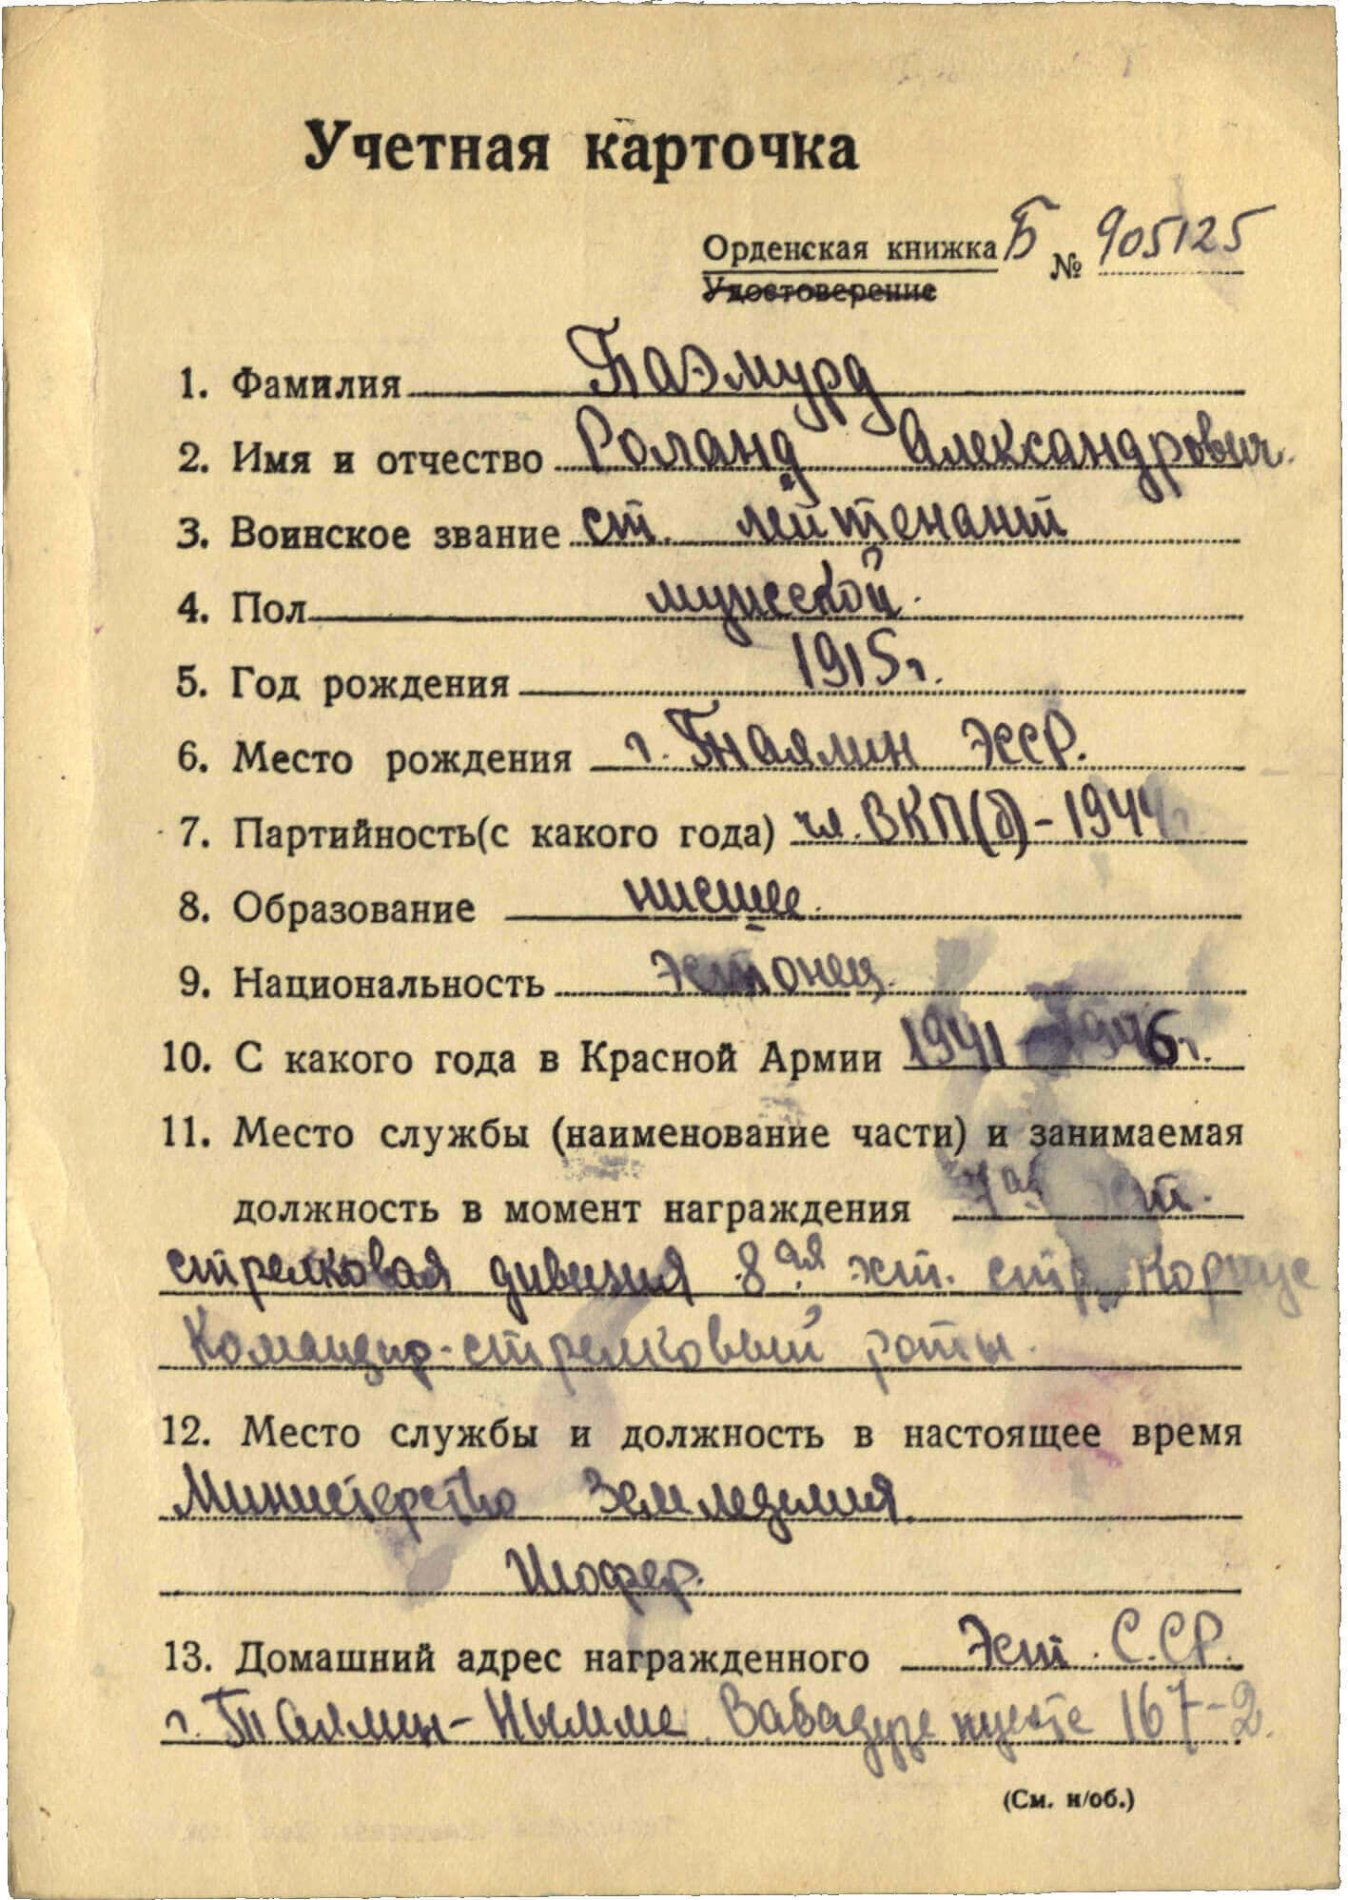 Учетная карточка
Орденская книжка Б № 905125
Удостоверение
1. Фамилия Паэмурд
2. Имя и отчество Роланд Александрович.
3. Воинское звание ст. лейтенант
4. Пол мужской.
5. Год рождения 1915 г.
6. Место рождения г. Таллин ЭССР.
7. Партийность(с какого года) чл. ВКП(б) - 1944
8. Образование низшее.
9. Национальность Эстонец.
10. С какого года в Красной Армии 1941 - 1946 г.
11. Место службы (наименование части) и занимаемая
должность в момент награждения 7ая эст.
стрелковая дивизия 8ая эст. стр. Корпус
Командир-стрелковый роты.
12. Место службы и должность в настоящее время
Министерство Земледелия.
Шофер.
13. Домашний адрес награжденного Эст. С.С.Р.
г. Таллин-Нымме. Вабадузе пуесте 167-2.
(См. н/об.)